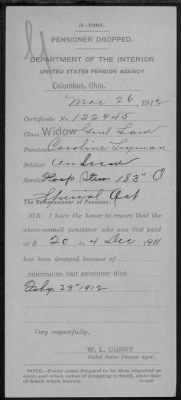 PENSIONER DROPPED.
DEPARTMENT OF THE INTERIOR
UNITED STATES PENSION AGENCY
Columbus, Ohio.
Mar 26, 1912
Certificate No. 122945
Class Widow Genl Law
Pensioner Caroline
Soldier Andrew
Service Hosp. Stew 183" O
Special Act
The Commissioner of Pensions.
SIR: I have the honor to report that the
above-named pensioner who was last paid
at $ 20 to 4 Dec, 1911
has been dropped because of
information that pensioner died
Feby. 29" 1912
Very respectfully,
W. L. CURRY
United States Pension Agent.
NOTE.—Every name dropped to be thus reported at
once, and when cause of dropping is death, state date
of death when known.